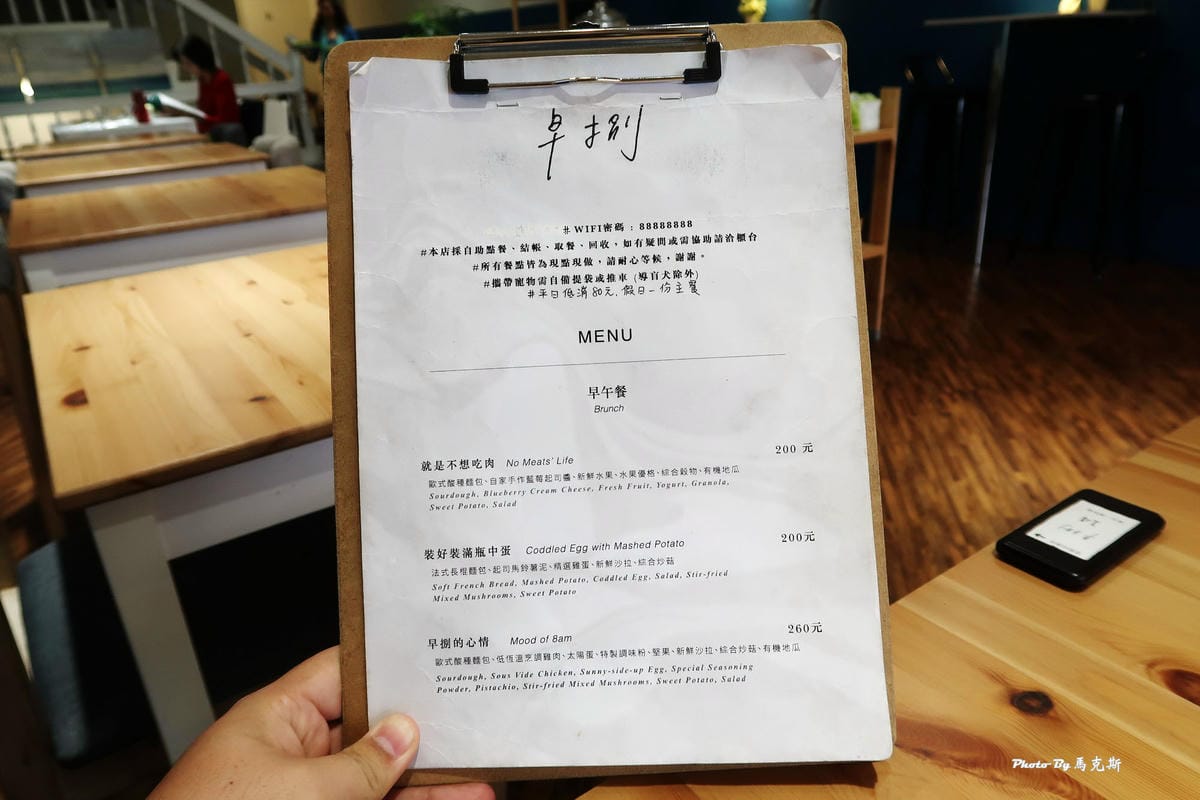 早捌
#WIFI密碼 : 88888888
#本店採自助點餐、結帳、取餐、回收，如有疑問或需協助請洽櫃台
#所有餐點皆為現點現做，請耐心等候，謝謝。
#攜帶寵物需自備提袋或推車 (導盲犬除外)
#平日低消80元、假日一份主餐
MENU
早午餐
Brunch
就是不想吃肉 No Meats' Life 200 元
歐式酸種麵包、自家手作藍莓起司醬、新鮮水果、水果優格、綜合穀物、有機地瓜
Sourdough, Blueberry Cream Cheese, Fresh Fruit, Yogurt, Granola,
Sweet Potato, Salad
裝好裝滿瓶中蛋 Coddled Egg with Mashed Potato 200元
法式長棍麵包、起司馬鈴薯泥、精選雞蛋、新鮮沙拉、綜合炒菇
Soft French Bread, Mashed Potato, Coddled Egg, Salad, Stir-fried
Mixed Mushrooms, Sweet Potato
早捌的心情 Mood of 8am 260元
歐式酸種麵包、低恆溫烹調雞肉、太陽蛋、特製調味粉、堅果、新鮮沙拉、綜合炒菇、有機地瓜
Sourdough, Sous Vide Chicken, Sunny-side-up Egg, Special Seasoning
Powder, Pistachio, Stir-fried Mixed Mushrooms, Sweet Potato, Salad
Photo By 馬克斯